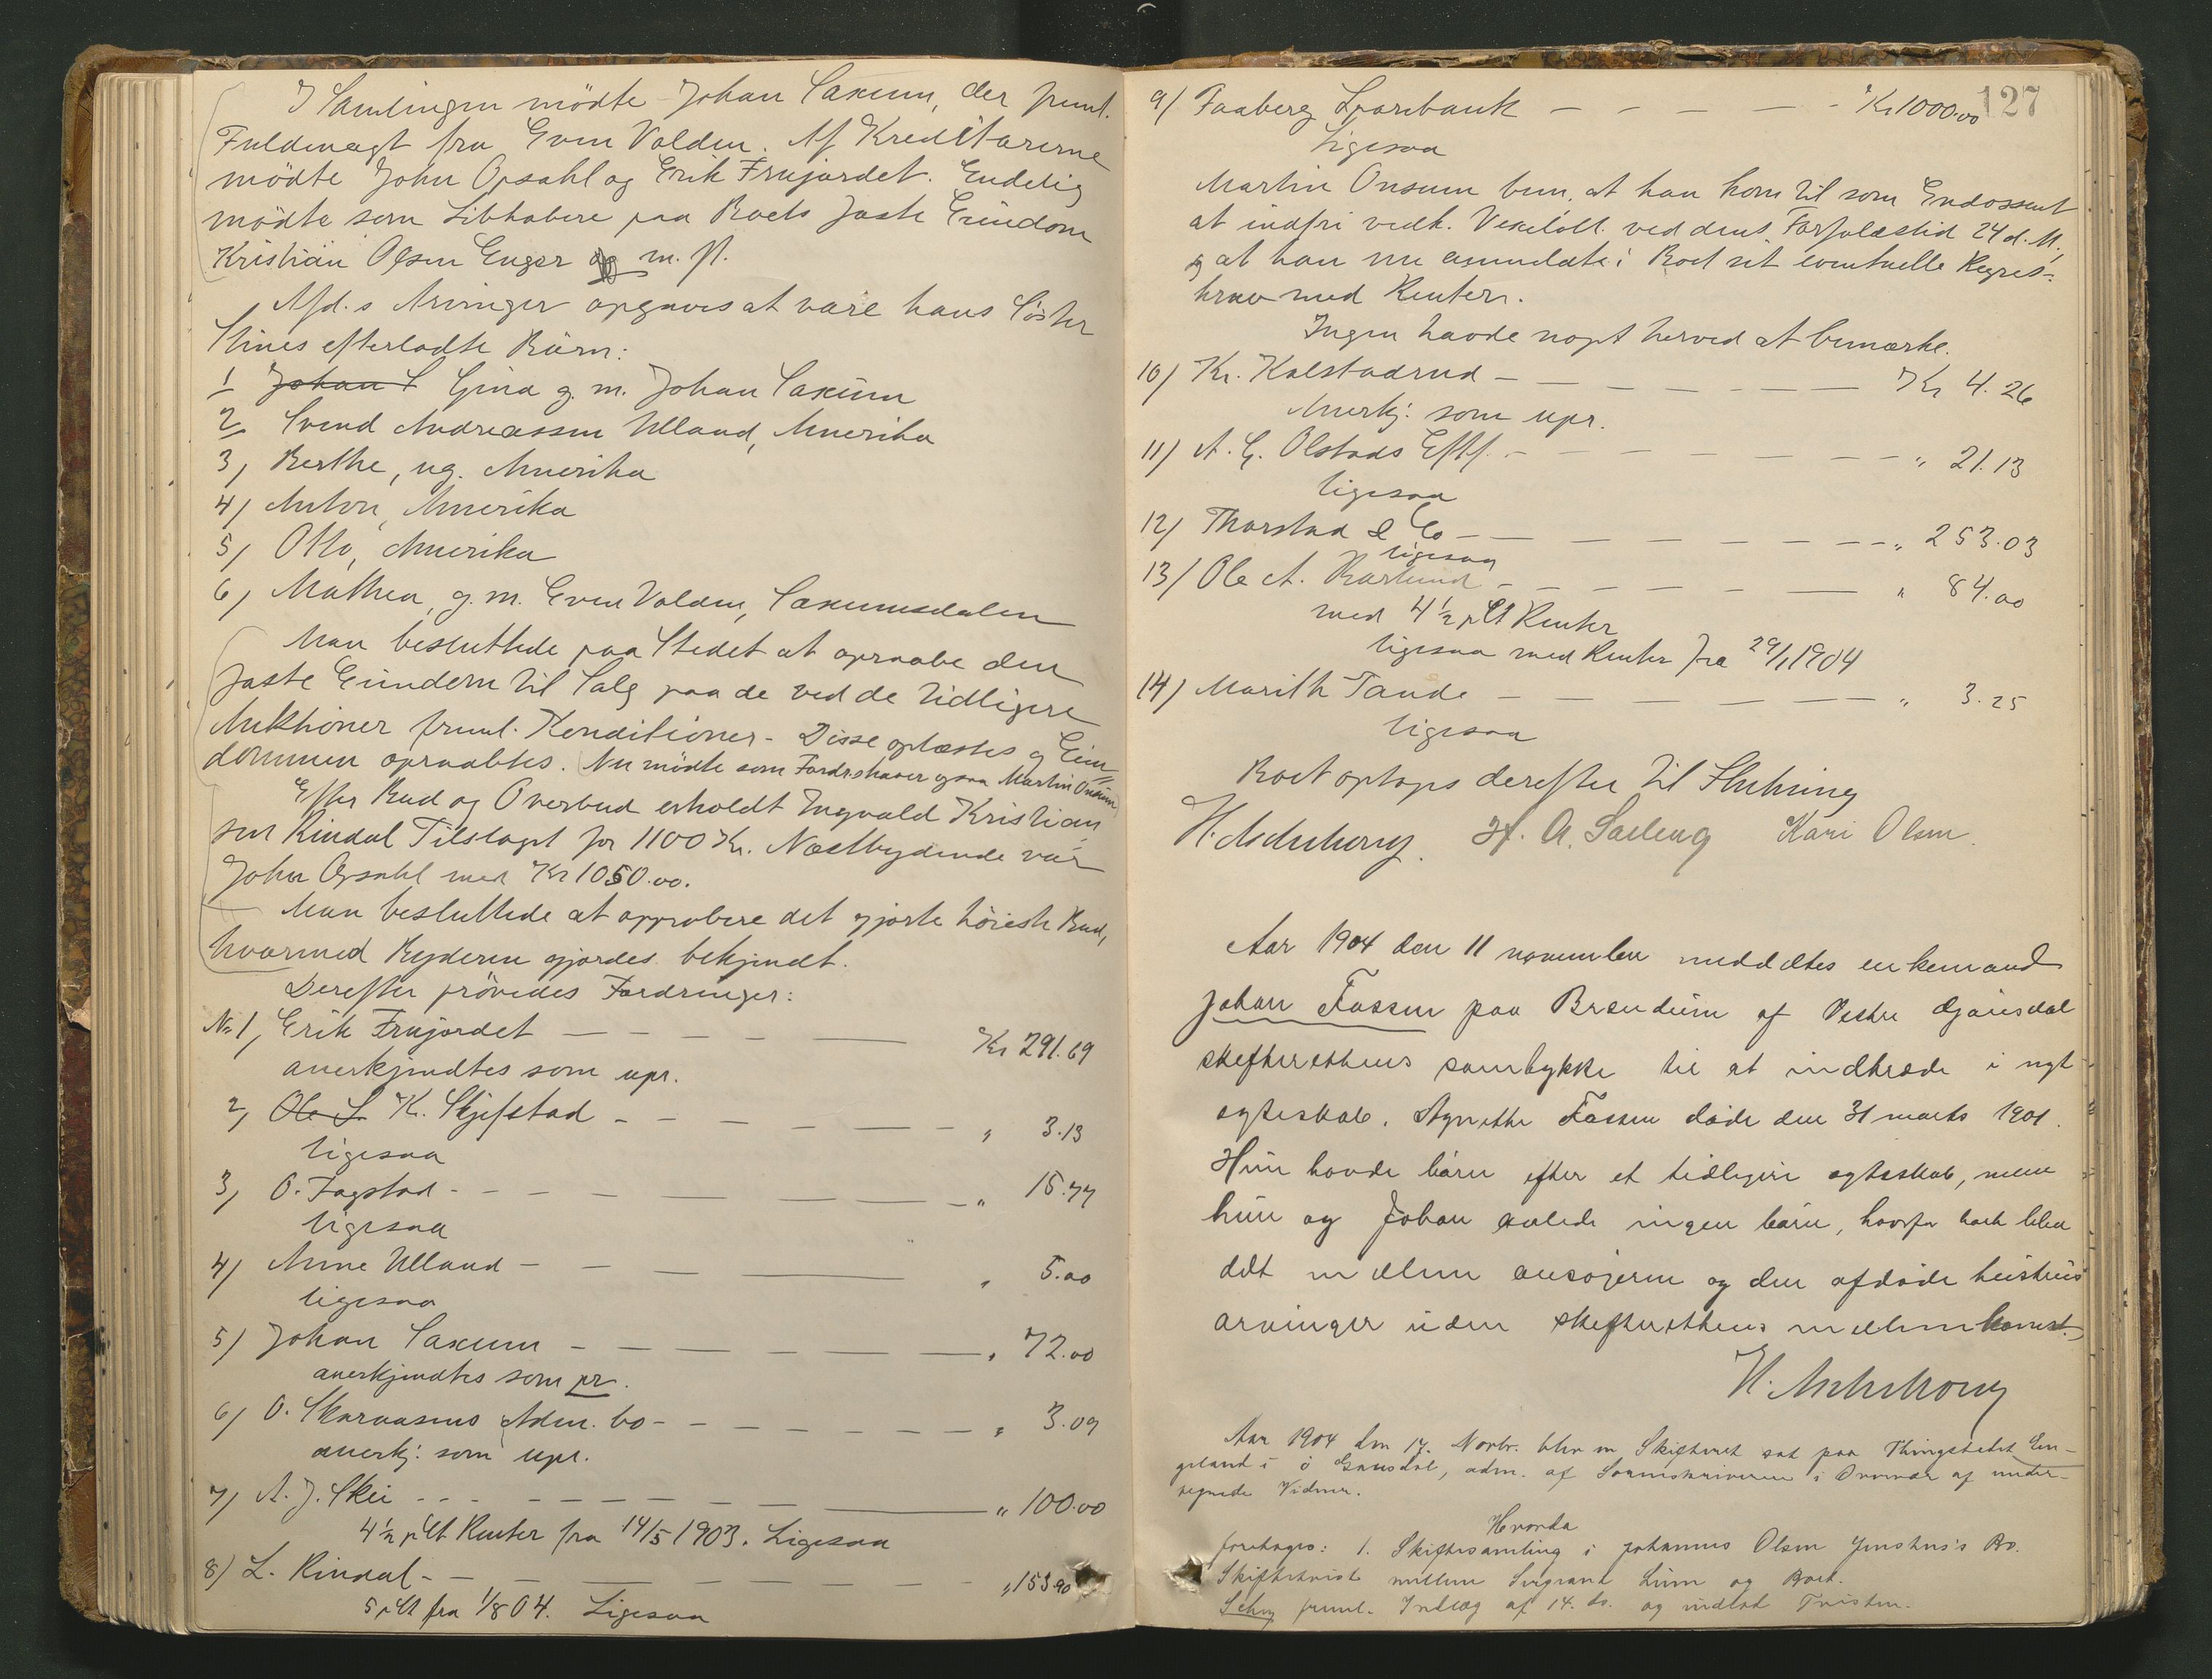 I Samlingen mödte Johan Saxum, der freml.
Fuldmagt fra Even Volden. Af Kreditorerne
mödte John Opsahl og Erik Frujordet. Endelig
mödte som Libhabere paa Boets faste Eiendom
Kristian Olsen Enger og m. fl.
Afd.s Arvinger opgaves at være hans Söster
Stines efterladte Börn:
1 Johan S Gina g. m. Johan Saxum
2 Svend Andreassen Ulland, Amerika
3, Berthe, ug. Amerika
4) Anton, Amerika
5, Otto, Amerika
6, Mathea, g. m. Even Volden, Saxumsdalen
Man besluttede paa Stedet at opraabe den
faste Eiendom til Salg paa de ved de tidligere
Auktioner freml. Konditioner. Disse oplæstes og Eien=
dommen opraabtes. Nu mödte som Fordrshaver ogsaa Martin Onsum
Efter Bud og Overbud erholdt Ingvald Kristian
sen Rindal Tilslaget for 1100 Kr. Næstbydende var
John Opsahl med Kr 1050.00.
Man besluttede at approbere det gjorte höieste Bud,
hvormed Byderen gjordes bekjendt.
Derefter prövedes Fordringer:
No 1, Erik Frujordet Kr 291.69
anerkjendtes som upr.
2, Ole S. K. Skjefstad " 3.13
ligesaa
3, O. Fagstad " 15.77
ligesaa
4) Anne Ulland " 5.00
ligesaa
5) Johan Saxum " 72.00
anerkjendtes som pr.
6) O. Skaraasens Adm. bo " 3.09
anerkj. som upr.
7) A. J. Skei " 100.00
4½ pCt Renter fra 14/5 1903. Ligesaa
8) L. Rindal " 153.90
5 pCt fra 1/8 04. Ligesaa
127
9) Faaberg Sparebank Kr 1000.00
Ligesaa
Martin Onsum bem. at han kom til som Endossent
at indfri vedk. Vexelobl. ved dens Forfaldstid 24 d. M.,
og at han nu anmeldte i Boet sit eventuelle Regres=
krav med Renter.
Ingen havde nogt herved at bemærke.
10) Kr. Kalstadrud Kr 4.26
Anerkj. som upr.
11) A. G. Olstads Eftf. " 21.13
ligesaa
12) Thorstad & Co " 253.03
ligesaa
13) Ole A. " 84.00
med 4½ pCt Renter
ligesaa med Renter fra 29/1 1904
14) Marith Tande " 3.25
ligesaa
Boet optoges derefter til Slutning
H. A. Kari Olsen.
Aar 1904 den 11 november meddeltes enkemand
Johan Fossen paa Brendum af Vestre Gausdal
skifterettens samtykke til at indtræde i nyt
egteskab. Agnethe Fossen døde den 31 marts 1901.
Hun havde børn efter et tidligere egteskab, men
hun og Johan avlede ingen børn, hvorfor boet blev
delt mellem ansøgeren og den afdøde hustrus
arvinger uden skifterettens mellemkomst.
H.
Aar 1904 den 17. Novbr. blev en Skifteret sat paa Thingstedet En-
geland i ö Gausdal, adm. af Sorenskriveren i Overvær af under-
tegnede Vidner.
Hvorda
foretoges: 1. Skiftesamling i Johannes Olsen Bo.
Skiftetvist mellem og Boet.
freml. Indlæg af 14. ds. og indlod Tvisten.